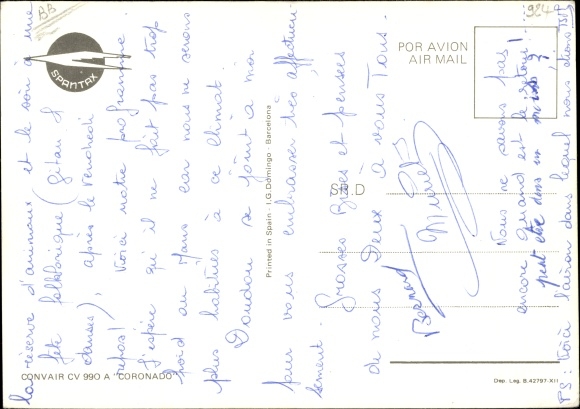 BB
924
SPANTAX
POR AVION
AIR MAIL
la réserve d'animaux et le soir à une
fête folklorique (gitan &
danses), après le Vendredi
repos! Voici notre programme.
J'espère qu'il ne fait pas trop
froid au Mans car nous ne serons
plus habitués à ce climat.
Doudou se joint à moi
pour vous embrasser très affectueu-
sement. Grosses Bises et pensées
de nous Deux à vous Tous.
Bernard
Muriel
Nous ne savons pas
encore Quand est le retour!
peut être dans un mois?
PS: Voici l'avion dans lequel nous étions
Printed in Spain - I.G. Domingo - Barcelona
S.D.
CONVAIR CV 990 A "CORONADO"
Dep. Leg. B.42797-XII